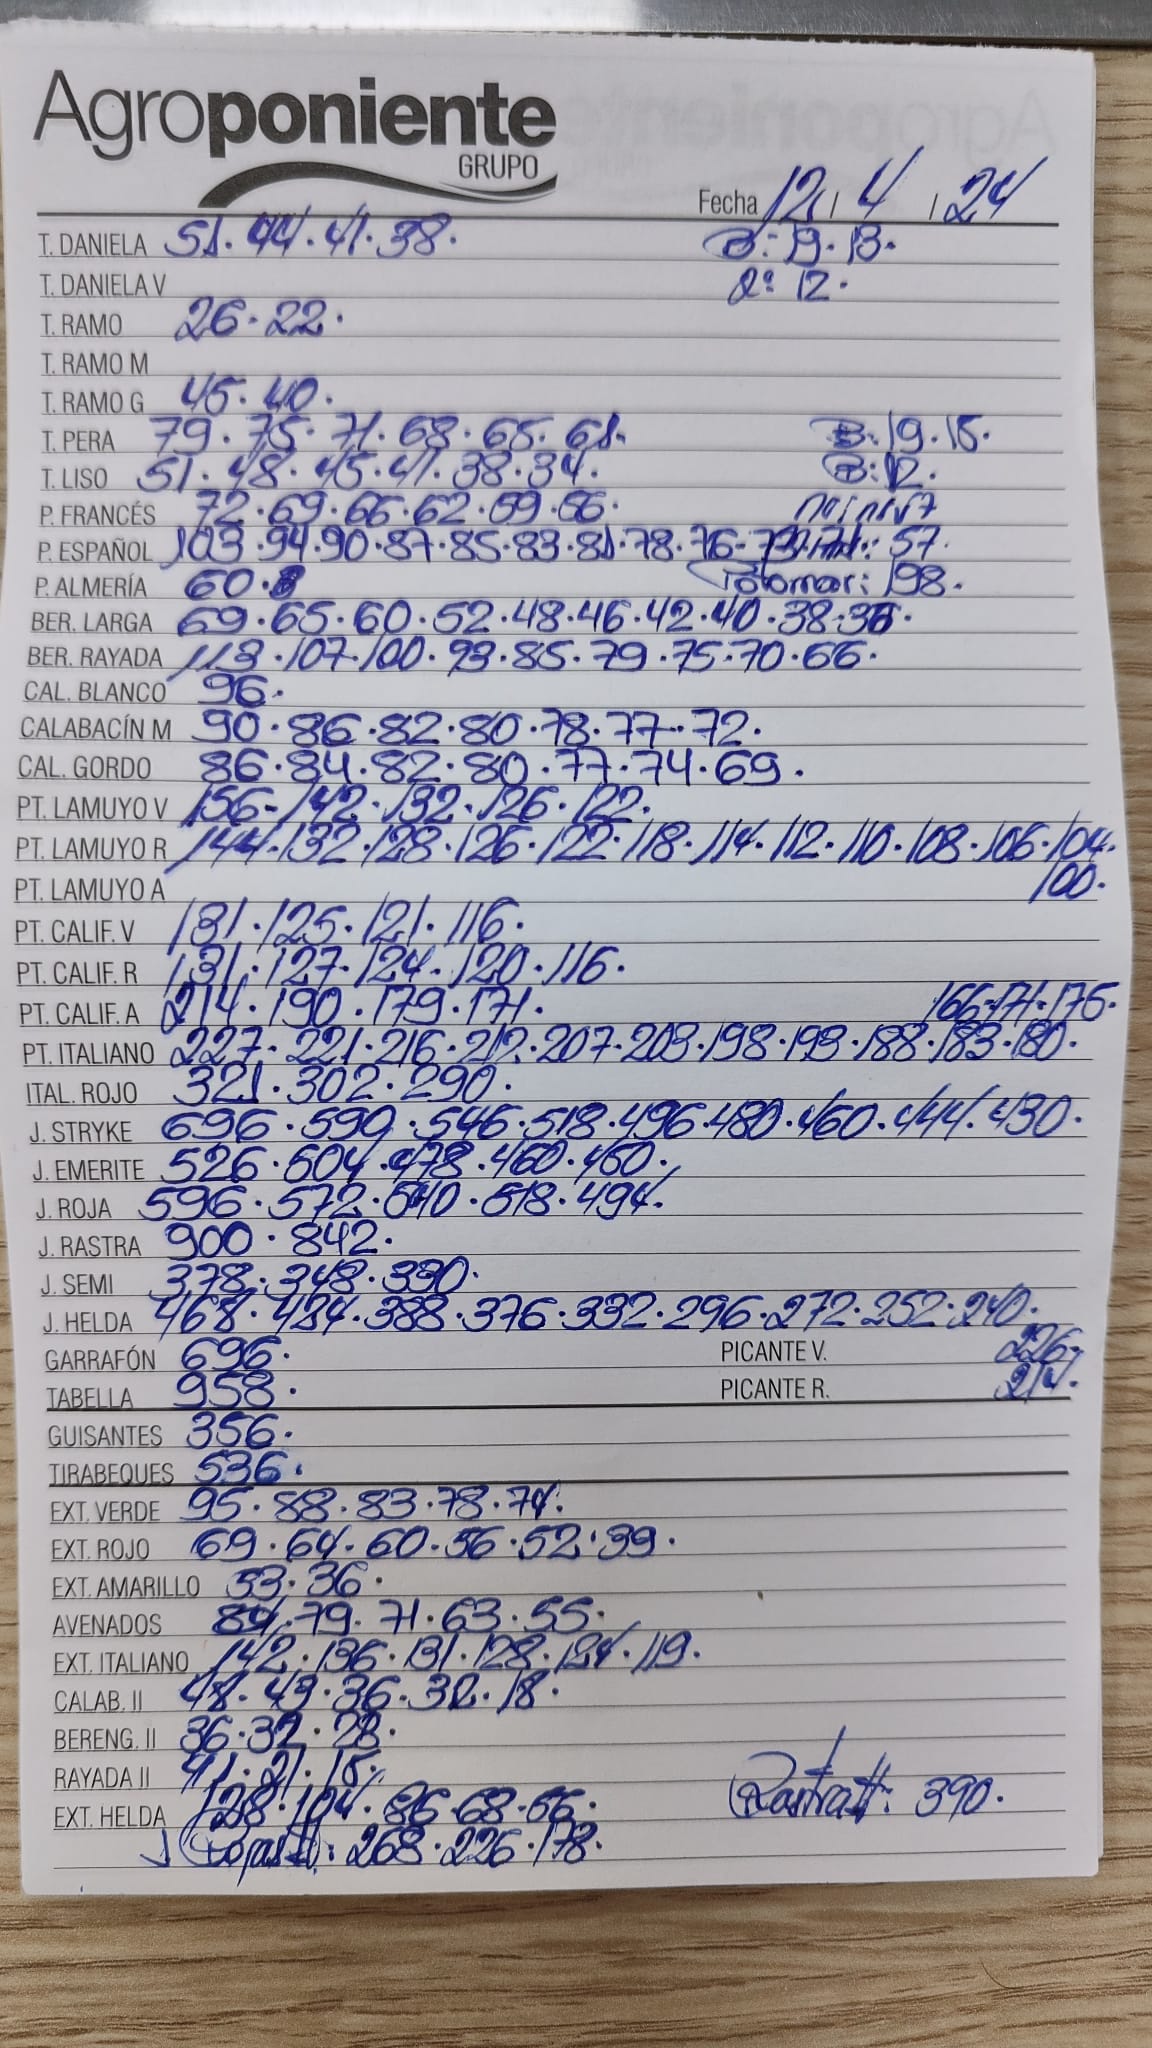 Agroponiente
GRUPO
Fecha 12 / 4 / 24
T. DANIELA 51. 44. 41. 38. B: 19. 13.
T. DANELA V 2ª: 12.
T. RAMO 26. 22.
T. RAMO M
T. RAMO G 45. 40.
T. PERA 79. 75. 71. 68. 65. 61. B: 19. 15.
T. LISO 51. 48. 45. 41. 38. 34. B: 12.
P. FRANCÉS 72. 69. 66. 62. 59. 56.
P. ESPAÑOL 103. 94. 90. 87. 85. 83. 81. 78. 76. 57.
P. ALMERÍA 60. 198.
BER. LARGA 69. 65. 60. 52. 48. 46. 42. 40. 38. 36.
BER. RAYADA 113. 107. 100. 93. 85. 79. 75. 70. 66.
CAL. BLANCO 96.
CALABACÍN M 90. 86. 82. 80. 78. 77. 72.
CAL. GORDO 86. 84. 82. 80. 77. 74. 69.
PT. LAMUYO V 156. 142. 132. 126. 122.
PT. LAMUYO R 144. 132. 128. 126. 122. 118. 114. 112. 110. 108. 106. 104.
100.
PT. LAMUYO A
PT. CALIF. V 131. 125. 121. 116.
PT. CALIF. R 131. 127. 124. 120. 116.
PT. CALIF. A 214. 190. 179. 171. 166. 171. 175.
PT. ITALIANO 227. 221. 216. 212. 207. 203. 198. 193. 188. 183. 180.
ITAL. ROJO 321. 302. 290.
J. STRYKE 696. 590. 546. 518. 496. 480. 460. 444. 430.
J. EMERITE 526. 504. 478. 460. 460.
J. ROJA 596. 572. 540. 518. 494.
J. RASTRA 900. 842.
J. SEMI 378. 348. 330.
J. HELDA 468. 424. 388. 376. 332. 296. 272. 252. 240.
GARRAFÓN 696. PICANTE V. 226.
TABELLA 958. PICANTE R. 214.
GUISANTES 356.
TIRABEQUES 536.
EXT. VERDE 95. 88. 83. 78. 74.
EXT. ROJO 69. 64. 60. 56. 52. 39.
EXT. AMARILLO 53. 36.
AVENADOS 84. 79. 71. 63. 55.
EXT. ITALIANO 142. 136. 131. 128. 124. 119.
CALAB. II 48. 43. 36. 32. 18.
BERENG. II 36. 32. 28.
RAYADA II 41. 21. 15.
EXT. HELDA 128. 104. 86. 68. 56. Rastra II: 390.
J Rojas II: 268. 226. 178.